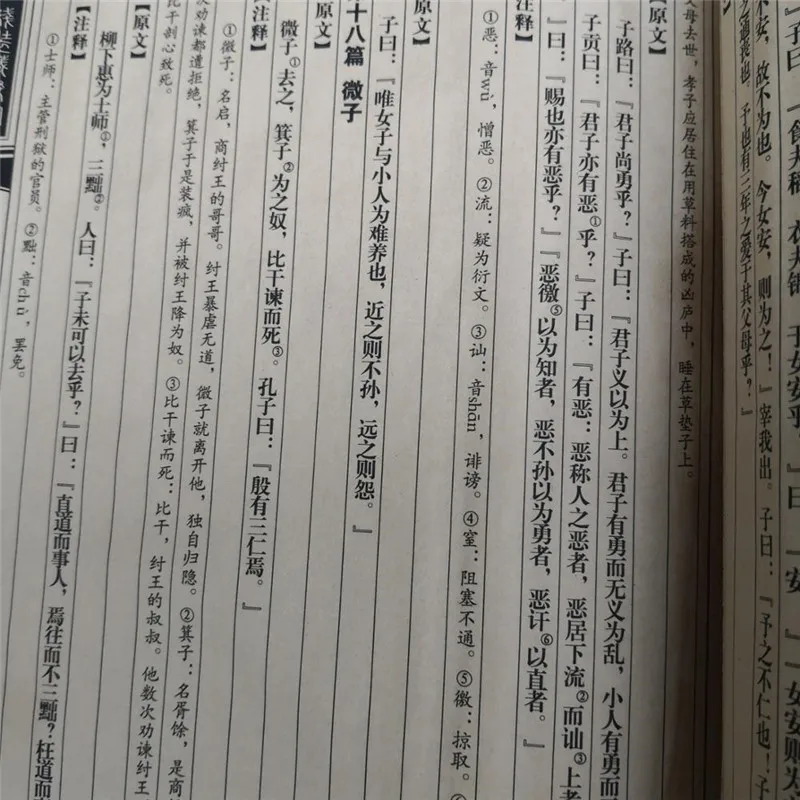 子曰：『食夫稻，衣夫锦，于女安乎？』曰：『安。』『女安则为
不安，故不为也。今女安，则为之！』宰我出。子曰：『予之不仁也！子
之通丧也。予也有三年之爱于其父母乎？』
父母去世，孝子应居住在用草料搭成的凶庐中，睡在草垫子上。
【原文】
子路曰：『君子尚勇乎？』子曰：『君子义以为上。君子有勇而无义为乱，小人有勇
子贡曰：『君子亦有恶①乎？』子曰：『有恶：恶称人之恶者，恶居下流②而讪③上者
曰：『赐也亦有恶乎？』『恶徼⑤以为知者，恶不孙以为勇者，恶讦⑥以直者。』
【注释】
①恶：音wù，憎恶。②流：疑为衍文。③讪：音shàn，诽谤。④窒：阻塞不通。⑤徼：掠取。⑥
原文】
子曰：『唯女子与小人为难养也，近之则不孙，远之则怨。』
十八篇 微子
原文】
微子①去之，箕子②为之奴，比干谏而死③。孔子曰：『殷有三仁焉。』
【注释】
①微子：名启，商纣王的哥哥。纣王暴虐无道，微子就离开他，独自归隐。②箕子：名胥馀，是商
次劝谏都遭拒绝，箕子于是装疯，并被纣王降为奴。③比干谏而死：比干，纣王的叔叔。他数次劝谏纣王
比干剖心致死。
【原文】
柳下惠为士师①，三黜②。人曰：『子未可以去乎？』曰：『直道而事人，焉往而不三黜？枉道而
【注释】
①士师：主管刑狱的官员。②黜：音chù，罢免。